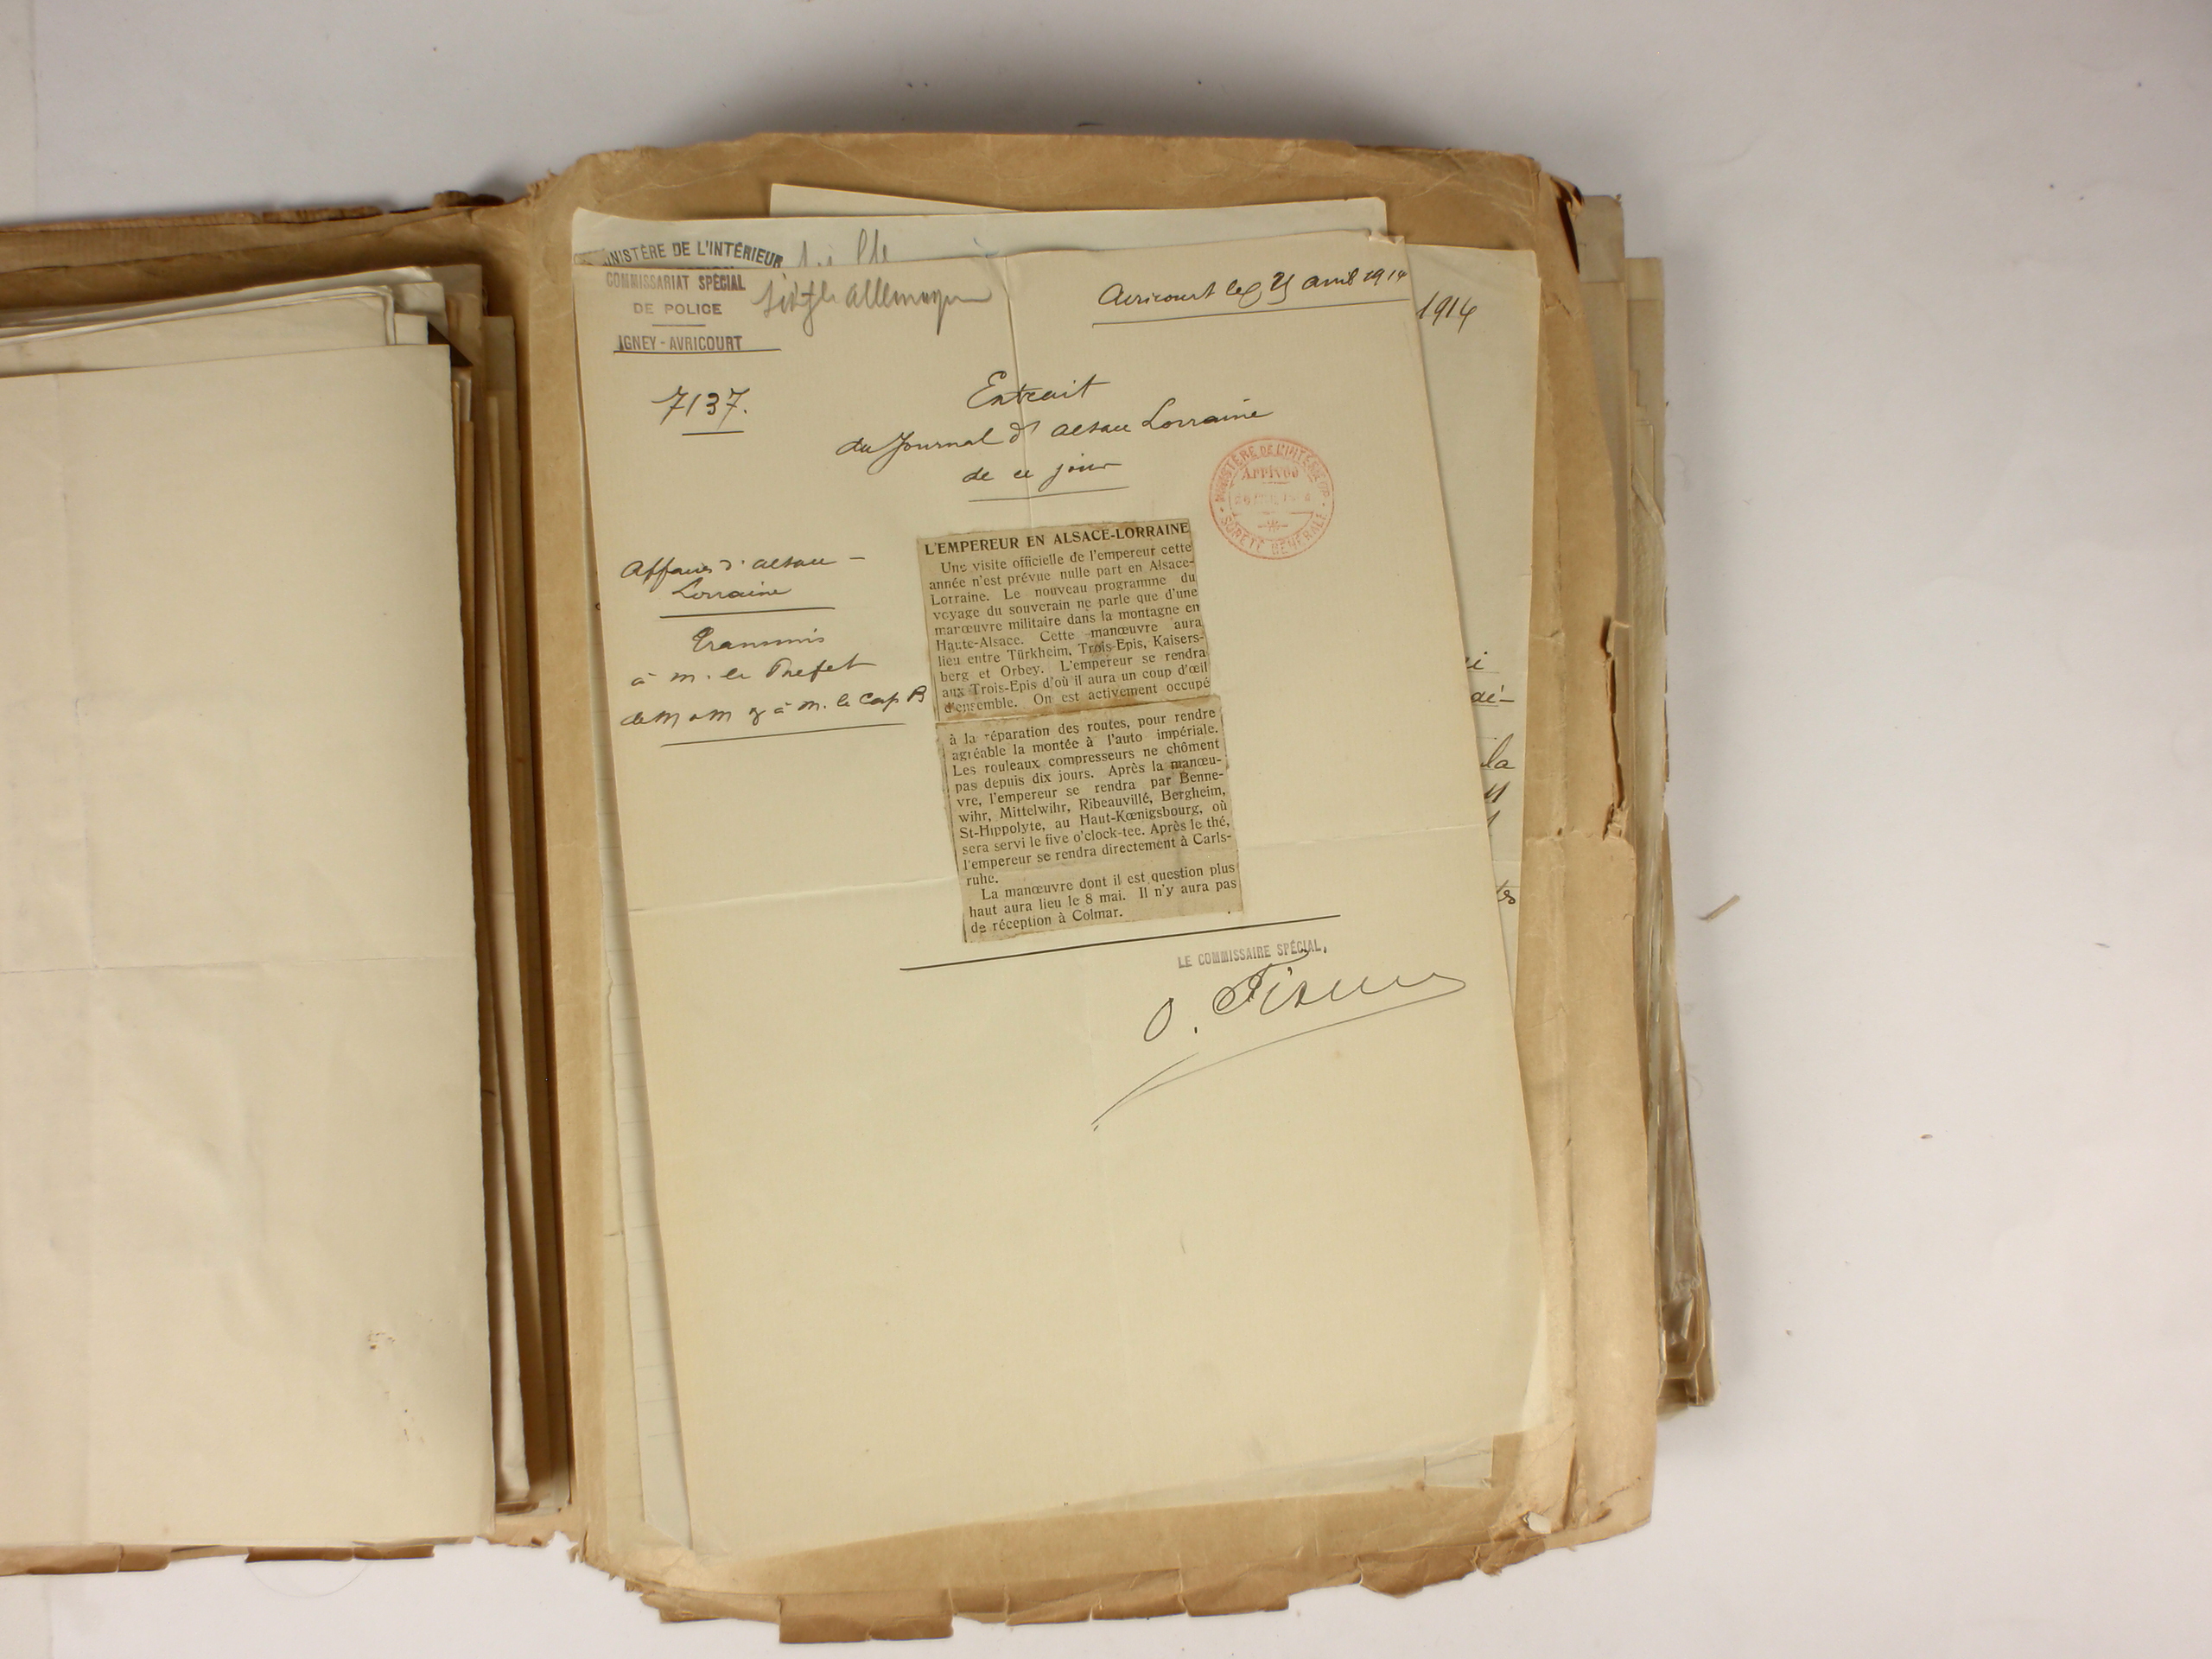 MINISTÈRE DE L'INTÉRIEUR
COMMISSARIAT SPÉCIAL
DE POLICE
IGNEY-AVRICOURT
allemagne
Avricourt le 25 avril 1914
1914
7137.
Extrait
du Journal d'Alsace Lorraine
de ce jour
MINISTÈRE DE L'INTÉRIEUR
Arrivée
SÛRETÉ GÉNÉRALE
Affaires d'Alsace-
Lorraine
Transmis
à M. le Préfet
de M & M & à M. le Cap B
L'EMPEREUR EN ALSACE-LORRAINE
Une visite officielle de l'empereur cette
année n'est prévue nulle part en Alsace-
Lorraine. Le nouveau programme du
voyage du souverain ne parle que d'une
manœuvre militaire dans la montagne en
Haute-Alsace. Cette manœuvre aura
lieu entre Türkheim, Trois-Epis, Kaisers-
berg et Orbey. L'empereur se rendra
aux Trois-Epis d'où il aura un coup d'œil
d'ensemble. On est activement occupé
à la réparation des routes, pour rendre
agréable la montée à l'auto impériale.
Les rouleaux compresseurs ne chôment
pas depuis dix jours. Après la manœu-
vre, l'empereur se rendra par Benne-
wihr, Mittelwihr, Ribeauvillé, Bergheim,
St-Hippolyte, au Haut-Kœnigsbourg, où
sera servi le five o'clock-tee. Après le thé,
l'empereur se rendra directement à Carls-
ruhe.
La manœuvre dont il est question plus
haut aura lieu le 8 mai. Il n'y aura pas
de réception à Colmar.
LE COMMISSAIRE SPÉCIAL,
la